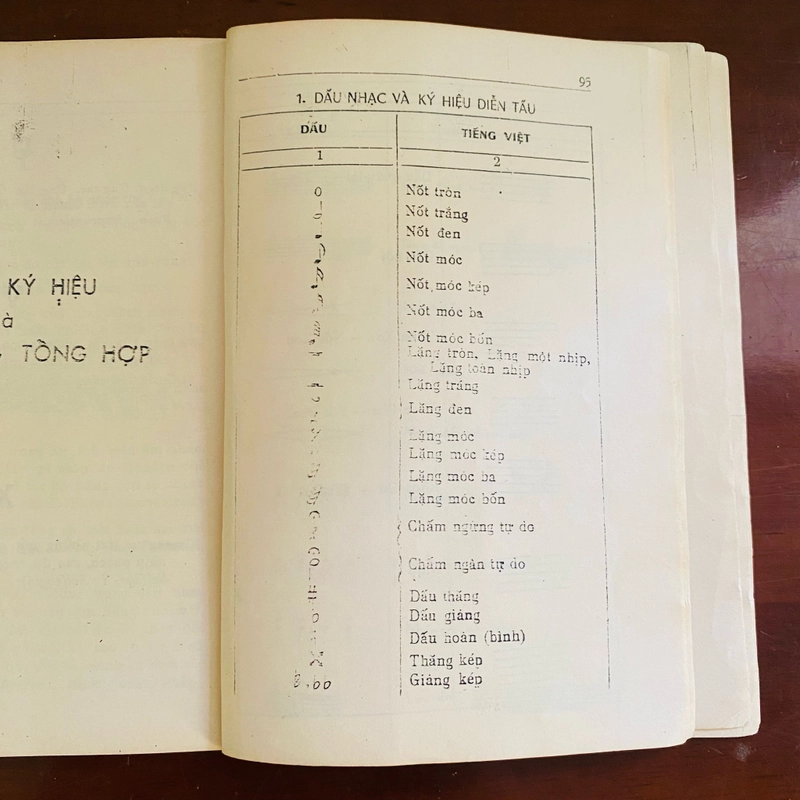 KÝ HIỆU
à
TỔNG HỢP
95
1. DẤU NHẠC VÀ KÝ HIỆU DIỄN TẤU
DẤU TIẾNG VIỆT
1 2
Nốt tròn
Nốt trắng
Nốt đen
Nốt móc
Nốt móc kép
Nốt móc ba
Nốt móc bốn
Lặng tròn, Lặng một nhịp,
Lặng toàn nhịp
Lặng trắng
Lặng đen
Lặng móc
Lặng móc kép
Lặng móc ba
Lặng móc bốn
Chấm ngừng tự do
Chấm ngân tự do
Dấu thăng
Dấu giảng
Dấu hoàn (bình)
Thăng kép
Giảng kép